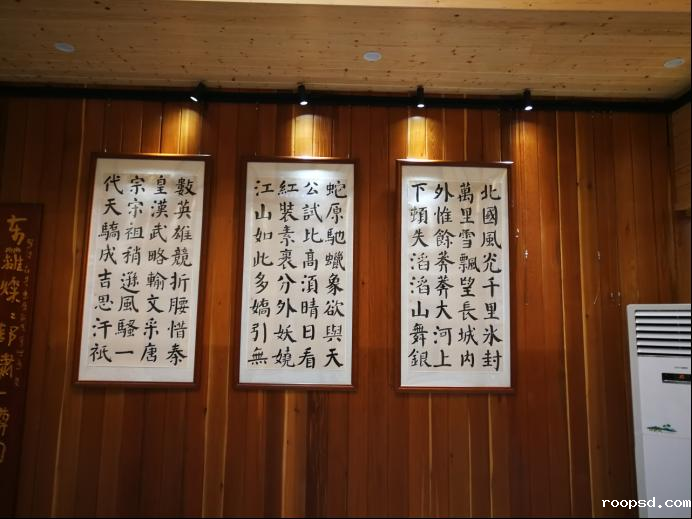 北國風光千里氷封
萬里雪飄望長城内
外惟餘莽莽大河上
下頓失滔滔山舞銀
蛇原馳蠟象欲與天
公試比高湏晴日看
紅裝素裹分外妖嬈
江山如此多嬌引無
數英雄競折腰惜秦
皇漢武略輸文采唐
宗宗祖稍遜風騷一
代天驕成吉思汗祇
roopsd.com